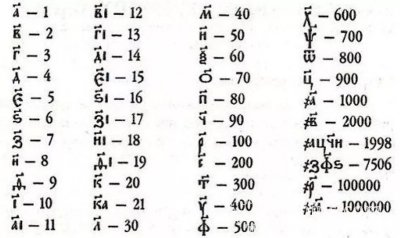 а҃ – 1
в҃ – 2
г҃ – 3
д҃ – 4
є҃ – 5
ѕ҃ – 6
з҃ – 7
и҃ – 8
ѳ҃ – 9
і҃ – 10
аі҃ – 11
ві҃ – 12
гі҃ – 13
ді҃ – 14
єі҃ – 15
ѕі҃ – 16
зі҃ – 17
иі҃ – 18
ѳі҃ – 19
к҃ – 20
ка҃ – 21
л҃ – 30
м҃ – 40
н҃ – 50
ѯ҃ – 60
о҃ – 70
п҃ – 80
ч҃ – 90
р҃ – 100
с҃ – 200
т҃ – 300
ѵ҃ – 400
ф҃ – 500
х҃ – 600
ѱ҃ – 700
ѿ҃ – 800
ц҃ – 900
҂а҃ – 1000
҂в҃ – 2000
҂ацч҃и – 1998
҂зф҃ѕ – 7506
҂р҃ – 100000
– 1000000